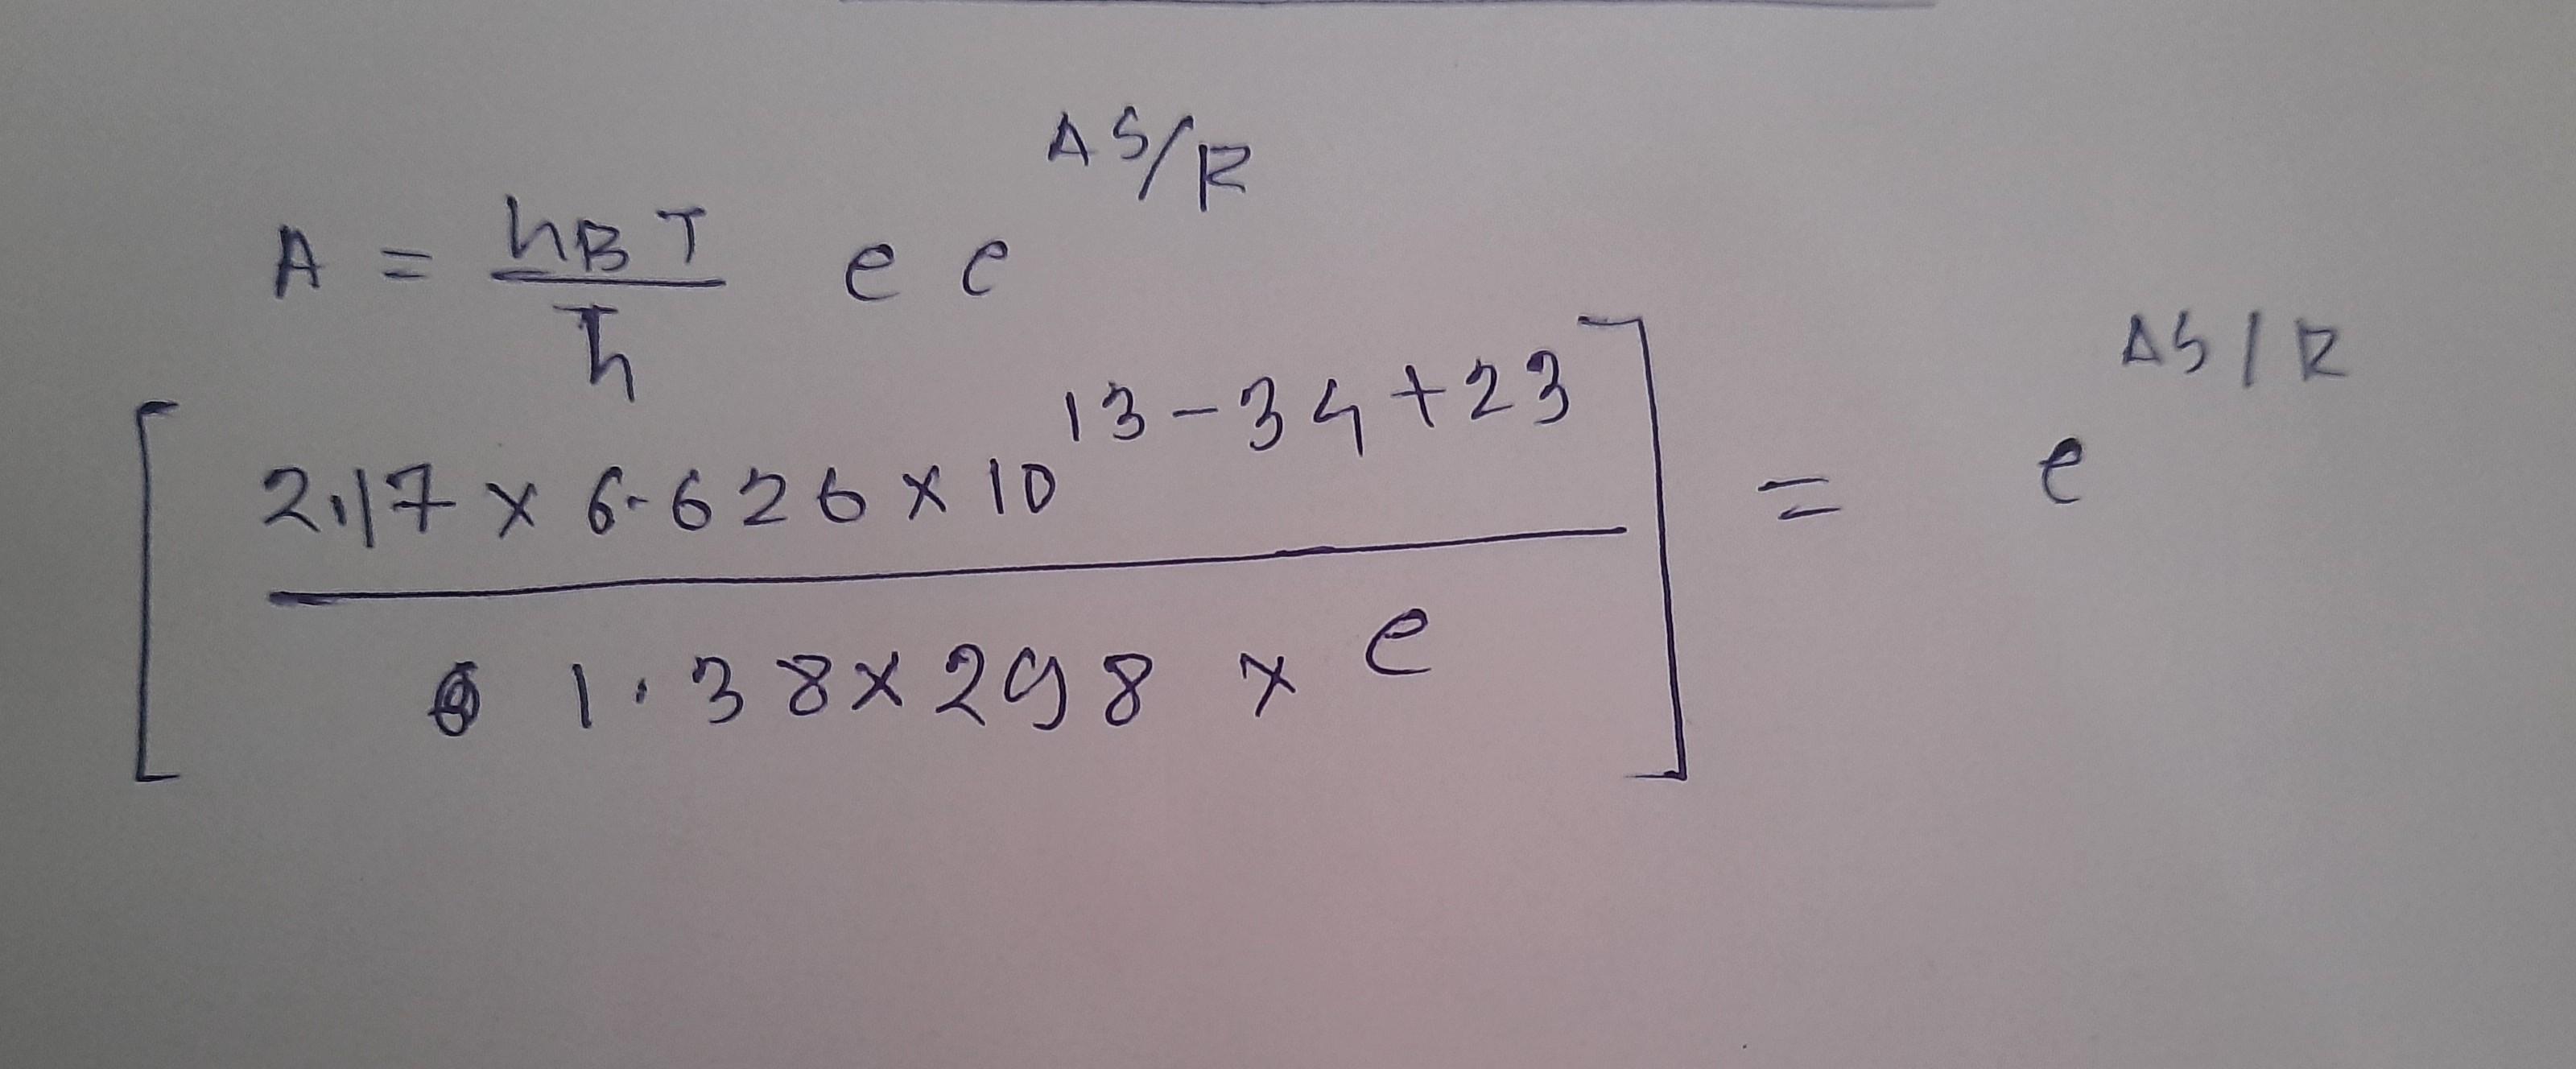 A = hBT/ħ e e^ΔS/R
[2.17 × 6.626 × 10^13-34+23 / 1.38 × 298 × e] = e^ΔS/R